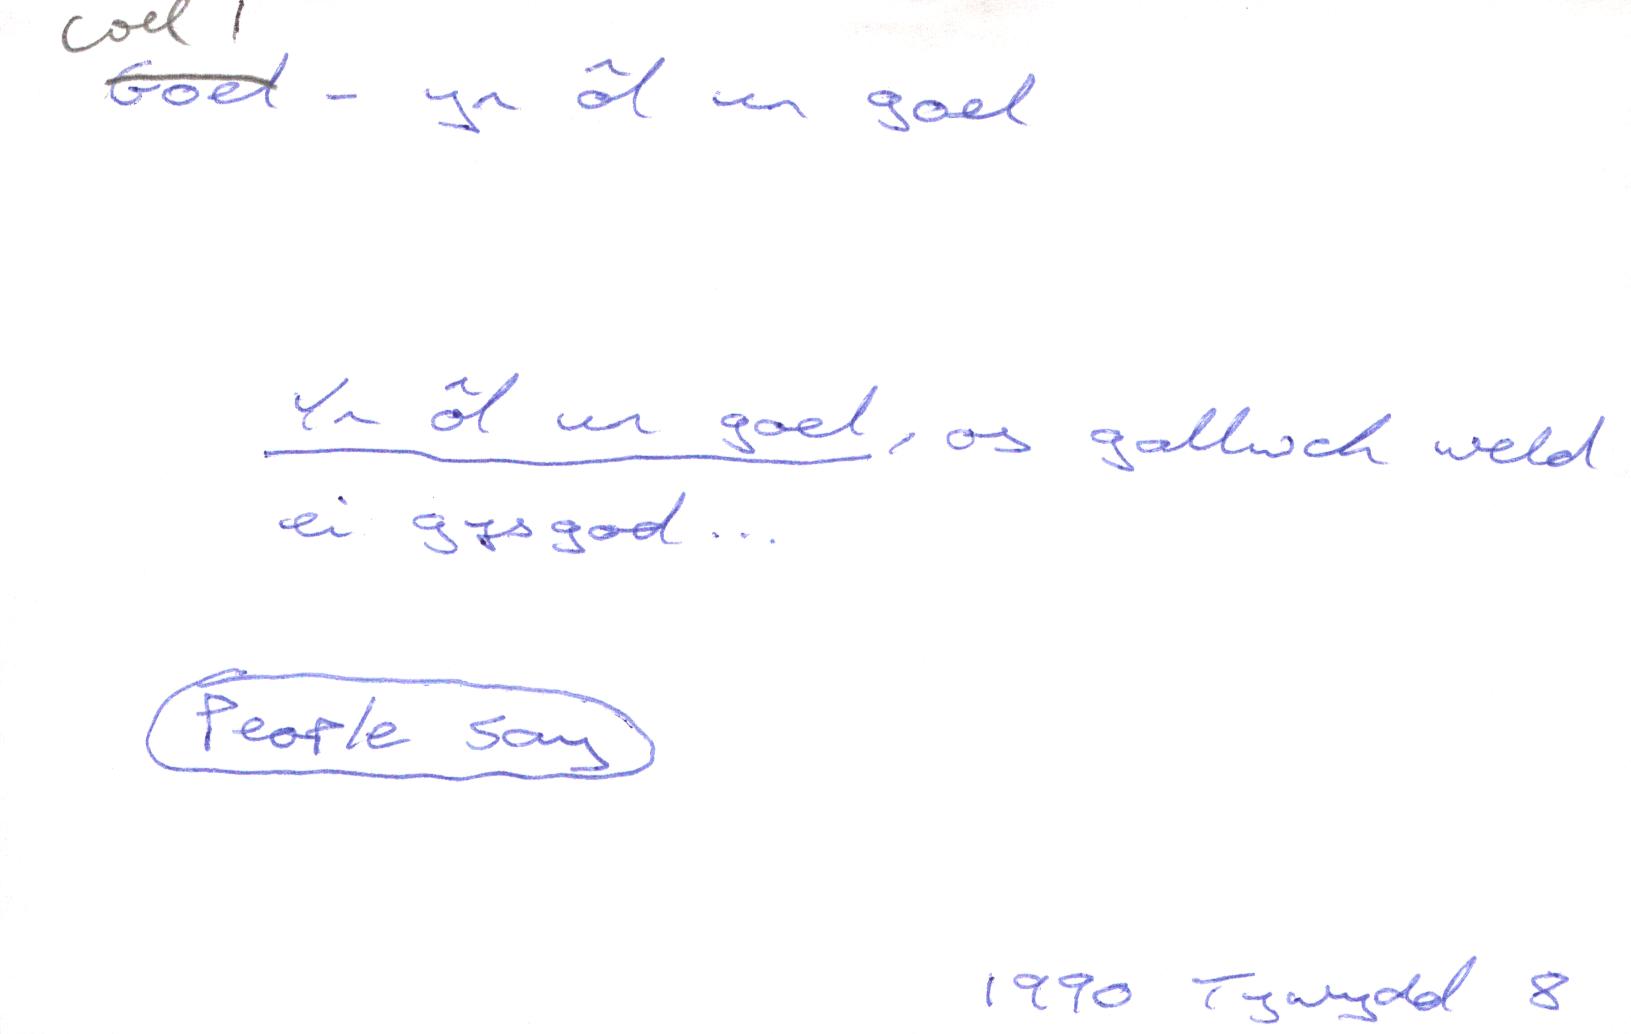 coel 1
Goel - yr ôl un goel
Yr ôl un goel, os gallwch weld
ei gysgod...
People say
1990 Tywydd 8